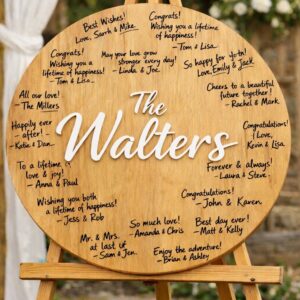 Best Wishes!
Love, Sarah & Mike
Congrats!
Wishing you a lifetime
of happiness!
- Tom & Lisa
Congrats!
Wishing you a
lifetime of happiness!
- Tom & Lisa
May your love grow
stronger every day!
- Linda & Joe
So happy for you both!
Love, Emily & Jack
All our love!
- The Millers
Cheers to a beautiful
future together!
- Rachel & Mark
Happily ever
after!
- Katie & Dan
The
Walters
Congratulations!
Love,
Kevin & Lisa
To a lifetime of
love & joy!
- Anna & Paul
Forever & always!
- Laura & Steve
Wishing you both
a lifetime of happiness!
- Jess & Rob
Congratulations!
- John & Karen
So much love!
- Amanda & Chris
Best day ever!
- Matt & Kelly
Mr. & Mrs.
at last
- Sam & Jen
Enjoy the adventure!
- Brian & Ashley